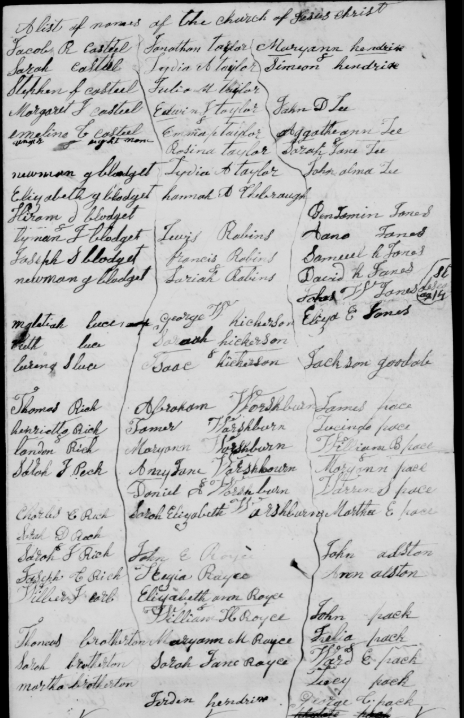 A list of names of the church of Jesus Christ
Jacob R casteel
Sarah casteel
Stephen f casteel
Margaret J casteel
emeline C casteel
newman g blodget
Elizabeth g blodget
Hiram S blodget
Lyman J blodget
Joseph S blodget
newman g blodget
luce
ruth luce
lurens S luce
Thomas Rich
henrietta Rich
landon Rich
Sarah J Peck
Charles C Rich
Rich
Sarah J Rich
Joseph E Rich
Thomas brotherton
Sarah brotherton
martha brotherton
Jonathan Taylor
Lydia A taylor
Julia M taylor
Edwin J taylor
Emma p taylor
Rosina taylor
Lydia A taylor
hannah A
Lewis Robins
Francis Robins
Robins
George W hickerson
Sarah hickerson
Isaac hickerson
Abraham Worshburn
Tamer Warshburn
Maryann Warshburn
Amy Jane Warshbourn
Daniel A Warshburn
Sarah Elizabeth Warshburn
John E Royce
Royce
Elizabeth ann Royce
William H Royce
Maryann M Royce
Sarah Jane Royce
hendrix
Maryann hendrix
Simeon hendrix
John D Lee
Aggatheann Lee
Sarah Jane Lee
John alma Lee
Benjamin Jones
Anna Jones
Samuel h Jones
David h Jones
John W Jones
Eliza E Jones
Jackson goodale
James pace
Lucinda pace
William B pace
Maryann pace
Warren S pace
Marthee E pace
John alston
Ann alston
John pack
Julia pack
Ward E pack
Lucy pack
George C pack